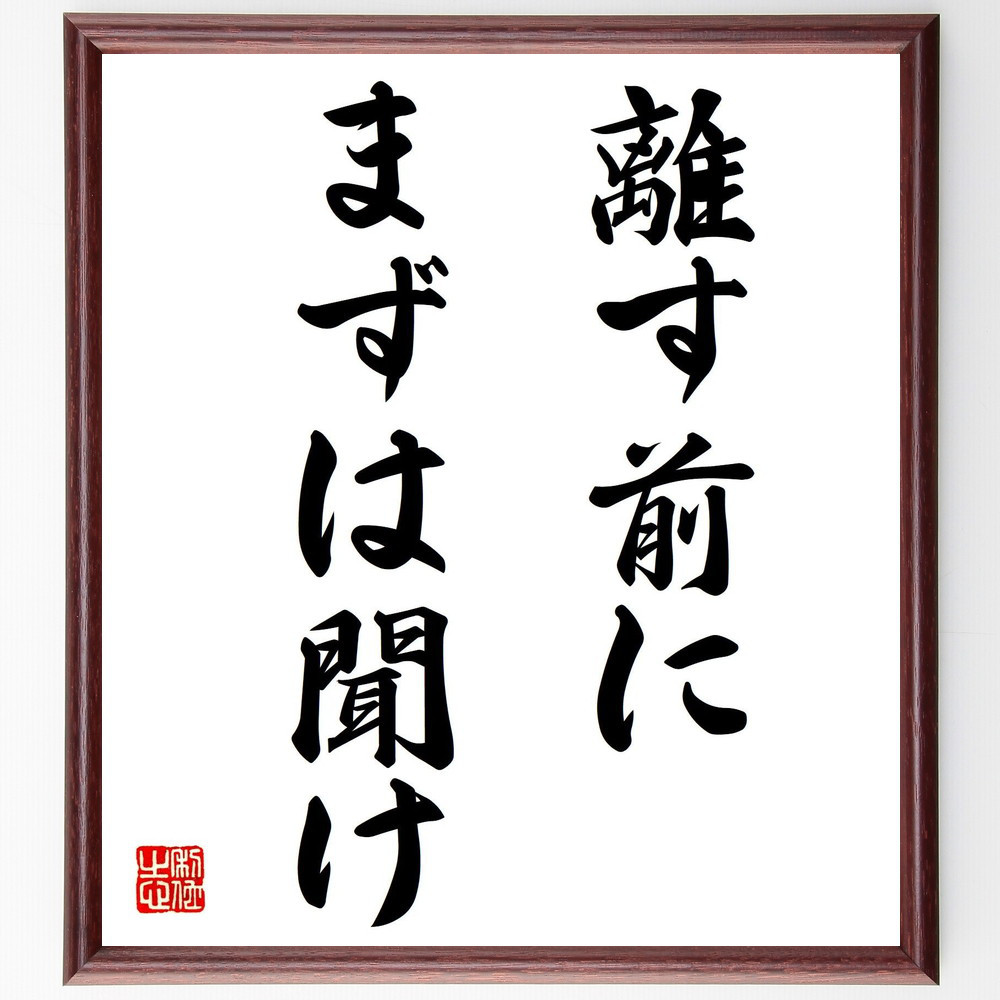 離す前に
まずは聞け